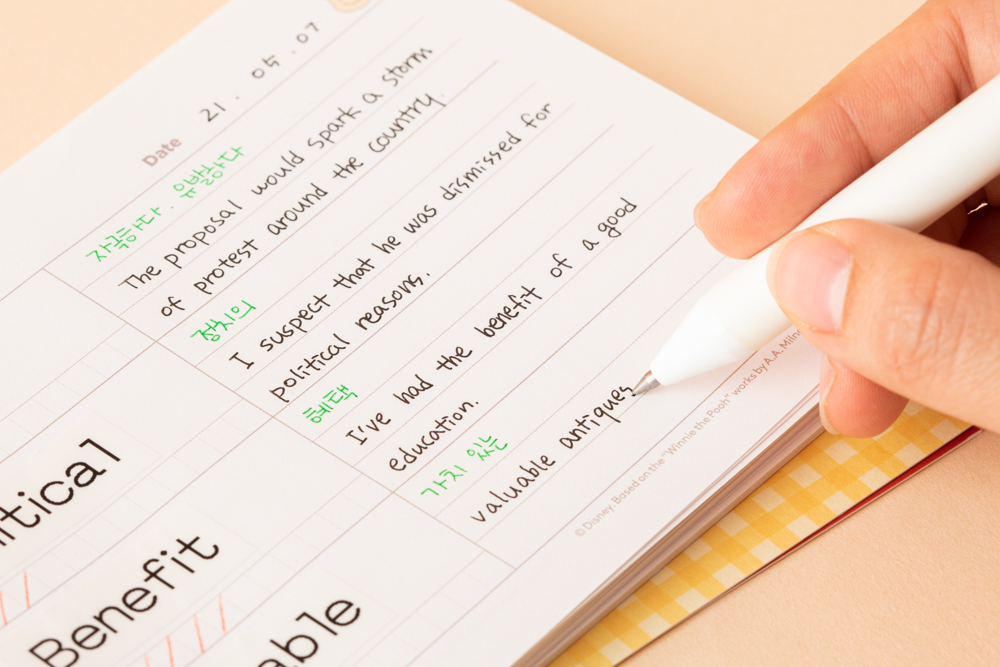 Date 21 . 05 . 07
자극하다. 유발하다
The proposal would spark a storm
of protest around the country.
정치의
I suspect that he was dismissed for
political reasons.
혜택
I've had the benefit of a good
education.
가치 있는
valuable antiques
itical
Benefit
able
© Disney. Based on the "Winnie the Pooh" works by A.A. Miln